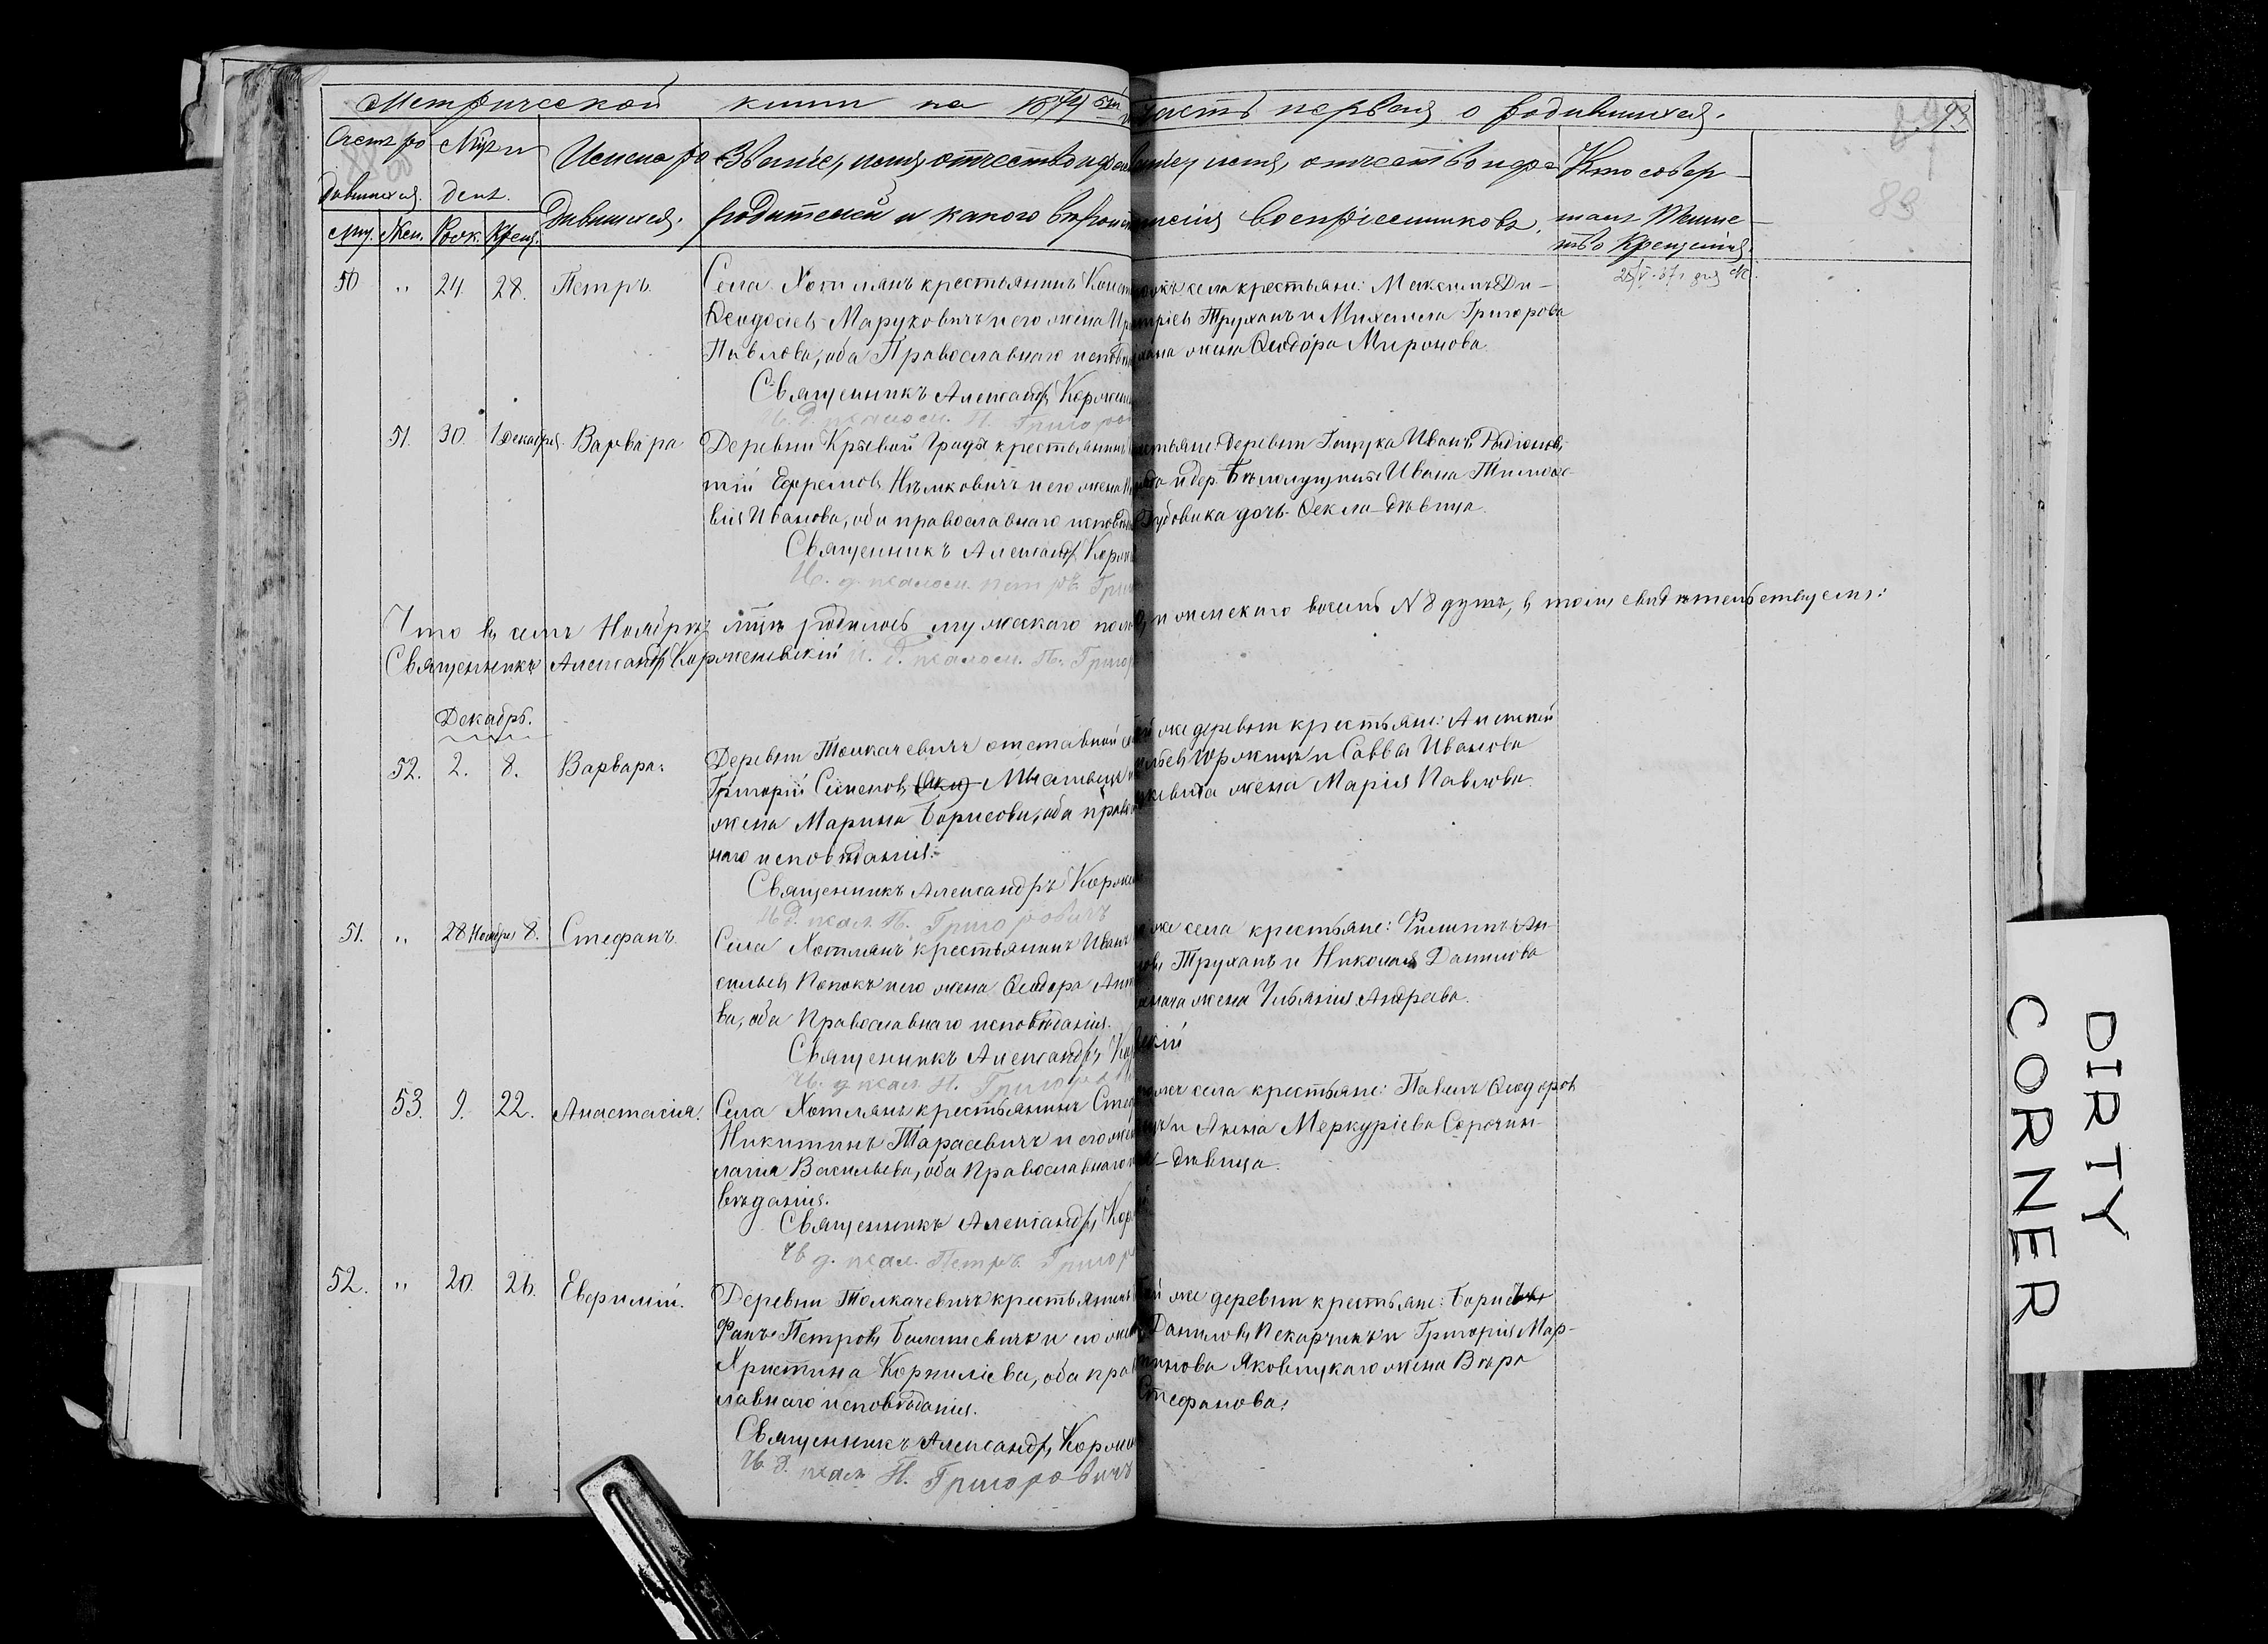 Метрической книги на 1874 часть первая о родившихся.
Счетъ ро
дившихся.
Муж. Жен.
Мцъ и
день.
Рожд. Крещ.
Имена ро
дившихся.
Званіе, имя, отчество и фам
родителей и какого вѣроисп
аніе, имя, отчество и фа-
милія воспріемниковъ.
Кто совер-
шалъ таинс-
тво крещенія.
93
83
50 " 24 28. Петръ.
Села Хотлянъ крестьянинъ Конст
Ѳеодосіевъ Маруковичъ и его жена Ир
Павлова, оба Православнаго исповѣд
Священникъ Александръ Корженев
И. Д. псаломщ. П. Григоров
села крестьяне: Максимъ Ди-
митріевъ Труханъ и Михаила Григорова
жена Ѳеодора Миронова.
51. 30. 1 Декабря. Варвара
Деревни Кривой Гряды крестьянинъ
тій Ефремовъ Нѣмковичъ и его жена
вія Иванова, оба православнаго исповѣд
Священникъ Александръ Корже
И. д. псаломщ. Петръ Григ
крестьяне: деревни Гощука Иванъ Родіоновъ
и дер. Ивана Тимоѳе-
дочь Ѳекла дѣвица.
Что въ семъ Ноябрѣ мцѣ родилось мужескаго пола и женскаго восемь № 8 душъ, въ томъ свидѣтельствуемъ:
Священникъ Александръ Корженевскій И. Д. псаломщ. П. Григор
Декабрь.
52. 2. 8. Варвара.
Деревни Толкачевичъ отставной
Григорій Семеновъ
жена Марина Борисова, оба право
наго исповѣданія.
Священникъ Александръ Корже
И. Д. псал. П. Григоровичъ
же деревни крестьяне: Алексѣй
и Саввы Иванова
жена Марія Павлова.
51. " 28 Ноября 8. Стефанъ.
Села Хотлянъ крестьянинъ Иванъ
сильевъ Попокъ и его жена Ѳеодора Анто
ва, оба Православнаго исповѣданія.
Священникъ Александръ Кор
И. д. псал. П. Григоров
же села крестьяне: Филиппъ Ан
Труханъ и Николая Данилова
жена Ульянія Андреева.
53. 9. 22. Анастасія.
Села Хотлянъ крестьянинъ Стеф
Никитинъ Тарасевичъ и его жена
Васильева, оба Православнаго
вѣданія.
Священникъ Александръ Кор
И. д. псал. Петръ Григор
села крестьяне: Павелъ Ѳеодоровъ
и Анна Меркуріева Сорочин-
дѣвица.
52. " 20. 26. Евфимій.
Деревни Толкачевичъ крестьянинъ
фанъ Петровъ и его жена
Христина Корниліева, оба прав
славнаго исповѣданія.
Священникъ Александръ Корже
И. Д. псал. П. Григоровичъ
же деревни крестьяне: Борисъ
Даниловъ Пекарчикъ и Григорія Мар-
тинова Яковицкаго жена Вѣра
Стефанова.
DIRTY
CORNER